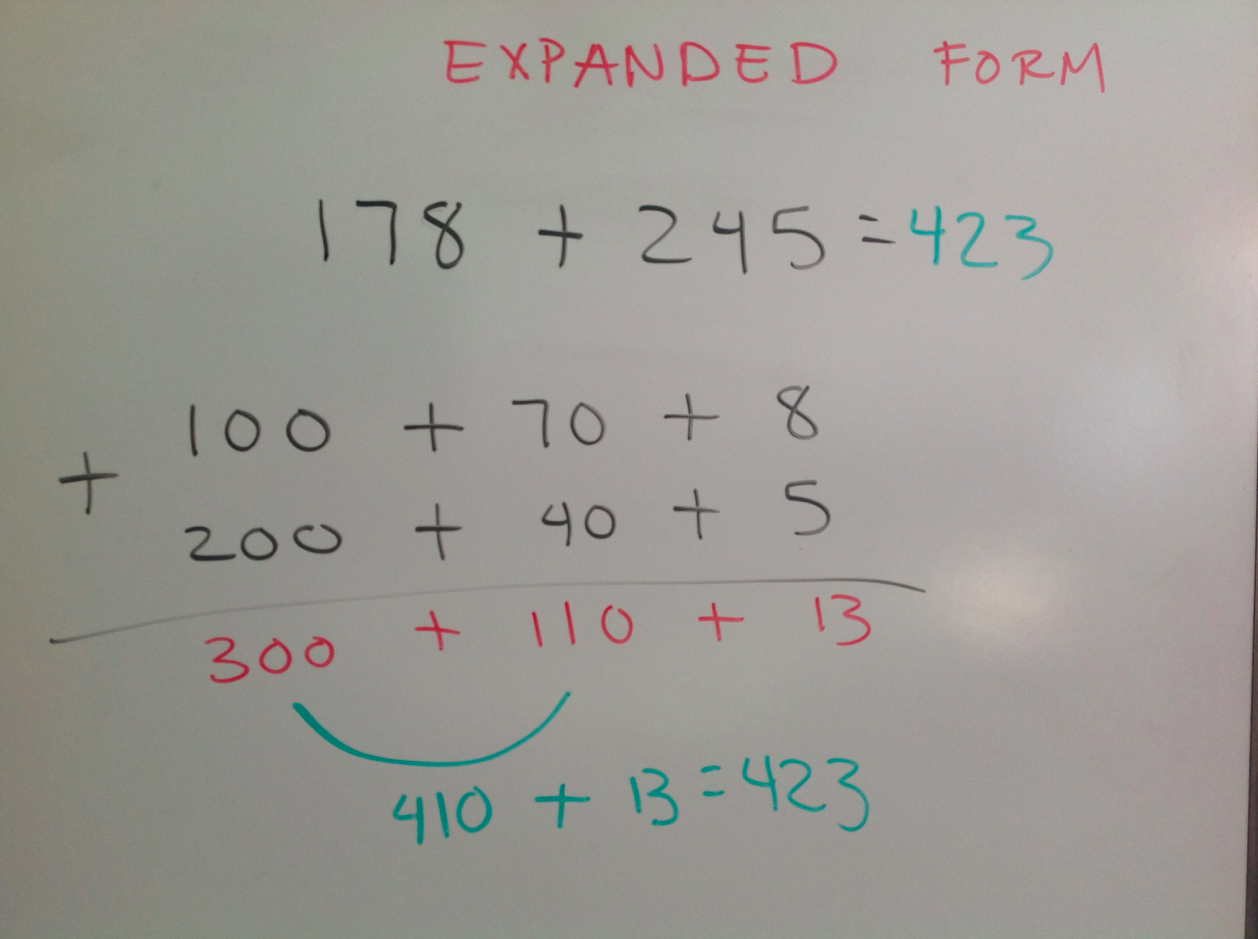 EXPANDED FORM
178 + 245 = 423
100 + 70 + 8
+
200 + 40 + 5
300 + 110 + 13
410 + 13 = 423